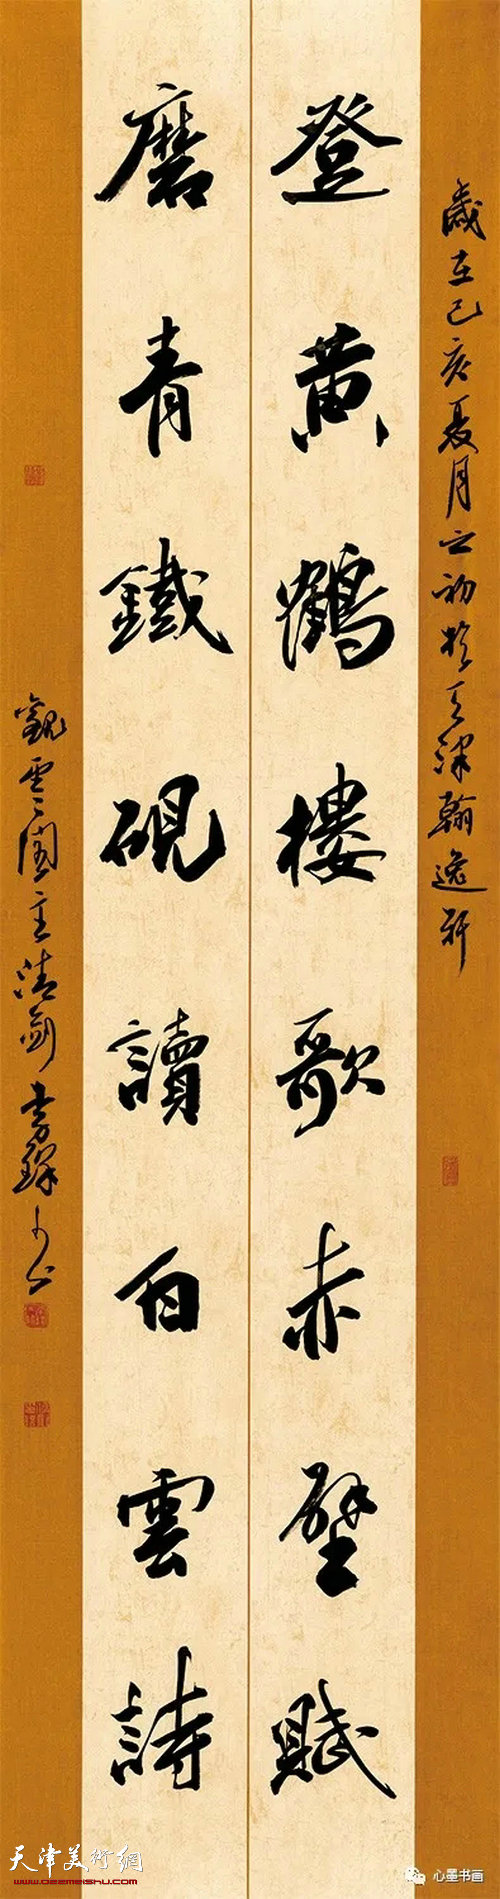 歲在己亥夏月之初於天津翰逸軒
登黃鶴樓歌赤壁賦
磨青鐵硯讀白雲詩
觀雲閣主清劍書
天津美術網
www.022meishu.com
心墨书画